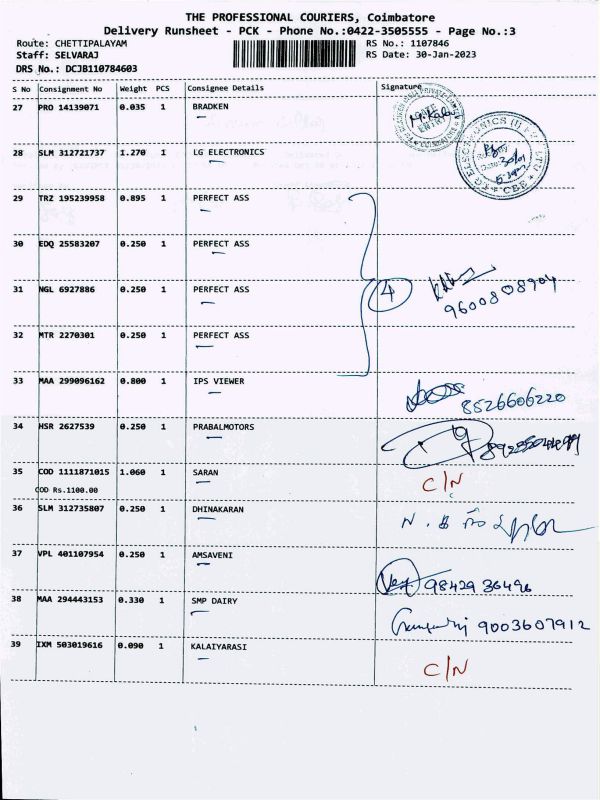 THE PROFESSIONAL COURIERS, Coimbatore
Delivery Runsheet - PCK - Phone No.:0422-3505555 - Page No.:3
Route: CHETTIPALAYAM RS No.: 1107846
Staff: SELVARAJ RS Date: 30-Jan-2023
DRS No.: DCJB110784603
S No Consignment No Weight PCS Consignee Details Signature
27 PRO 14139071 0.035 1 BRADKEN
28 SLM 312721737 1.270 1 LG ELECTRONICS
29 TRZ 195239958 0.895 1 PERFECT ASS
30 EDQ 25583207 0.250 1 PERFECT ASS
31 NGL 6927886 0.250 1 PERFECT ASS 4 9600808904
32 MTR 2270301 0.250 1 PERFECT ASS
33 MAA 299096162 0.800 1 IPS VIEWER 8526606220
34 HSR 2627539 0.250 1 PRABALMOTORS
35 COD 1111871015 1.060 1 SARAN C/N
COD Rs.1100.00
36 SLM 312735807 0.250 1 DHINAKARAN
37 VPL 401107954 0.250 1 AMSAVENI 9842936496
38 MAA 294443153 0.330 1 SMP DAIRY 9003607912
39 IXM 503019616 0.090 1 KALAIYARASI C/N